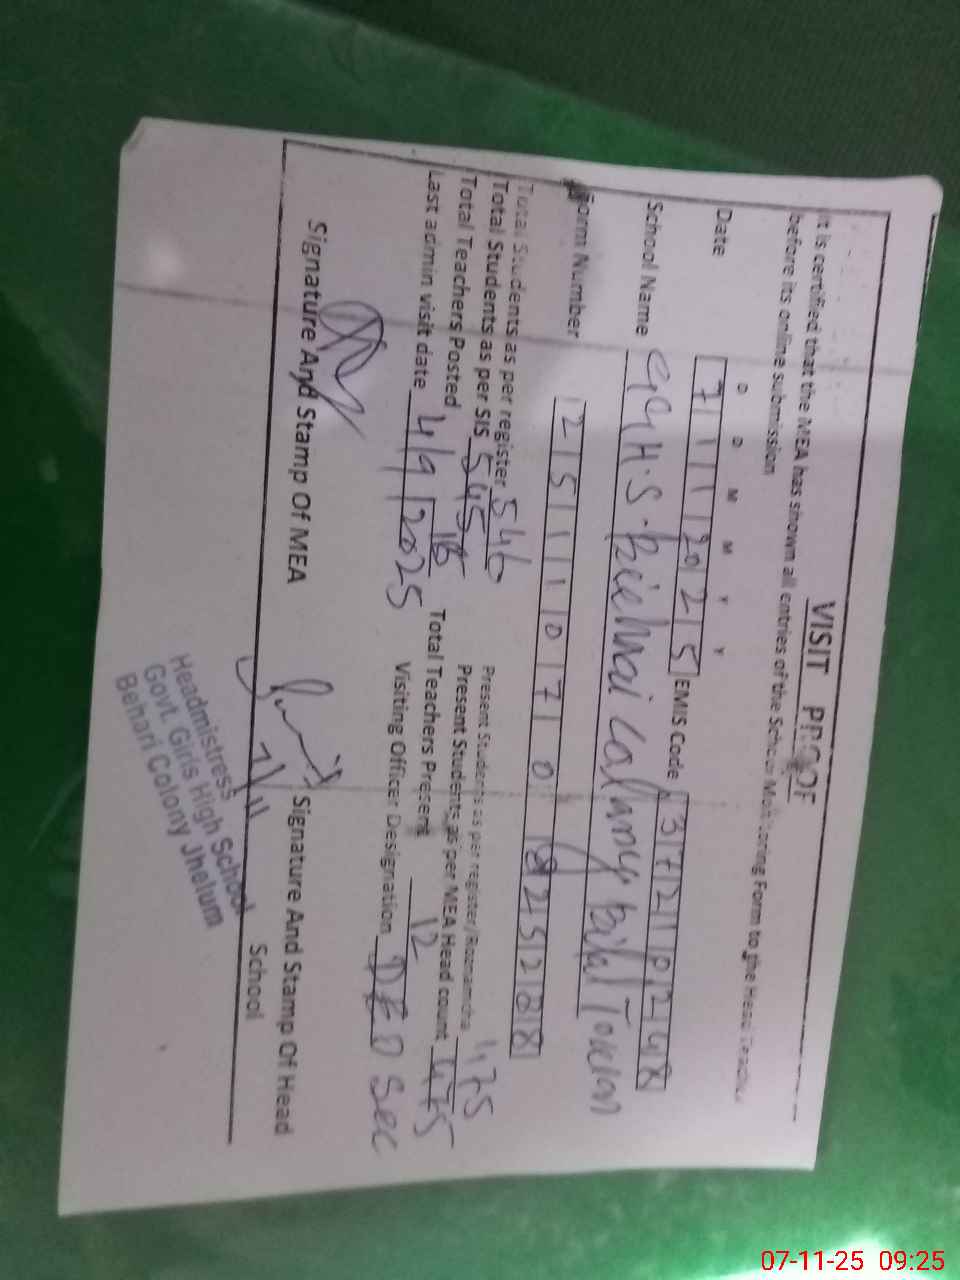 VISIT PROOF
It is certified that the MEA has shown all entries of the School Monitoring Form to the Head Teacher
before its online submission
D D M M Y Y
Date 7 11 2025 EMIS Code 37210248
School Name GGH.S. Colony Bilal Town
Form Number 2511107 0 825288
Total Students as per register 546 Present Students as per register/Roznamcha 475
Total Students as per SIS 545 Present Students as per MEA Head count 475
Total Teachers Posted 18 Total Teachers Present 12
Last admin visit date 4/9/2025 Visiting Officer Designation DEO Sec
Signature And Stamp Of MEA Signature And Stamp Of Head
School
7/11
Headmistress
Govt. Girls High School
Behari Colony Jhelum
07-11-25 09:25